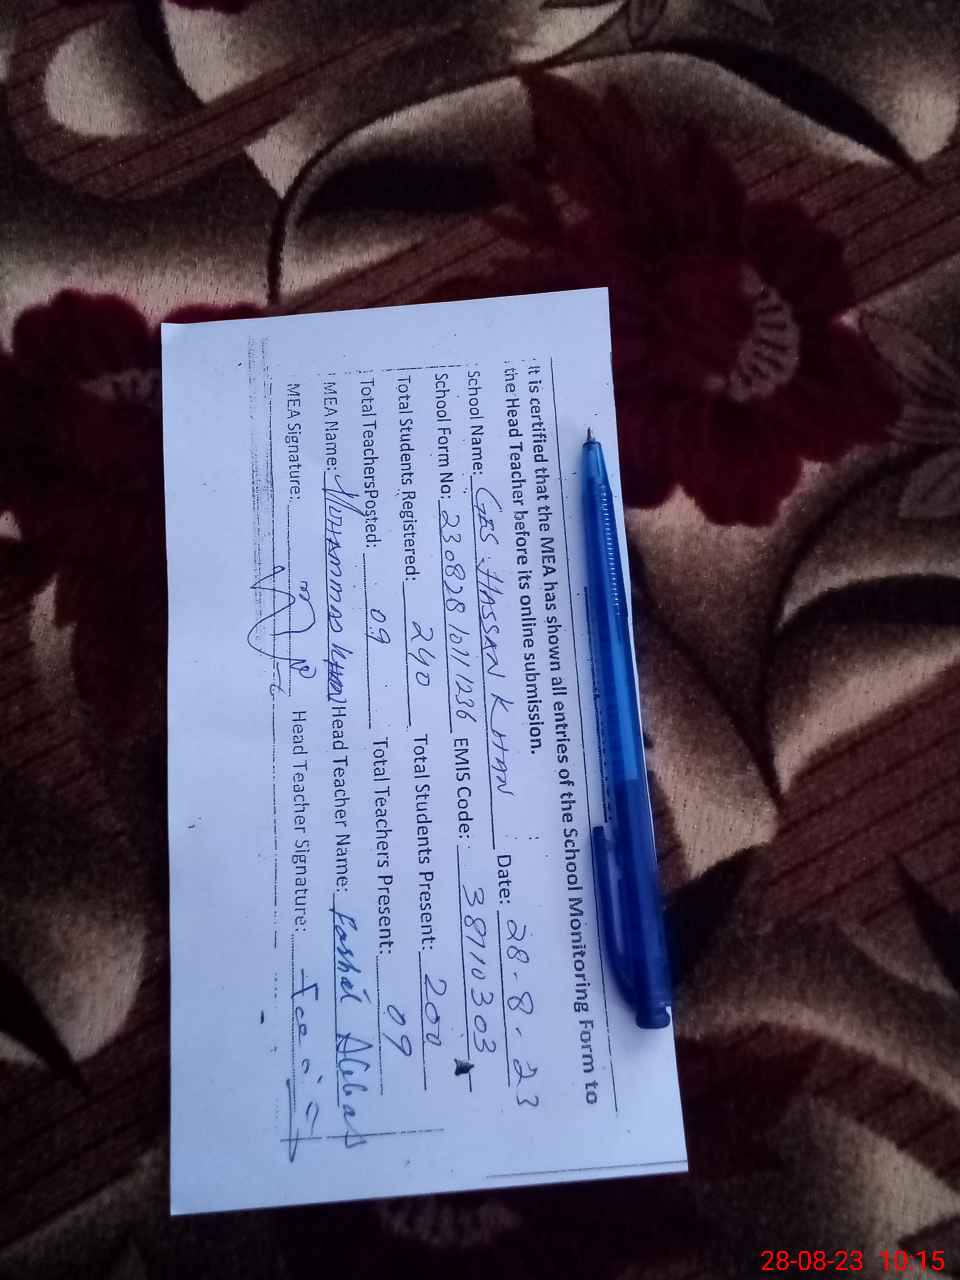 It is certified that the MEA has shown all entries of the School Monitoring Form to
the Head Teacher before its online submission.
School Name: GPS HASSAN KHAN Date: 28-8-23
School Form No: 230828 EMIS Code: 38710303
Total Students Registered: 240 Total Students Present: 200
Total TeachersPosted: 09 Total Teachers Present: 09
MEA Name: MUHAMMAD Head Teacher Name:
MEA Signature: Head Teacher Signature:
28-08-23 10:15